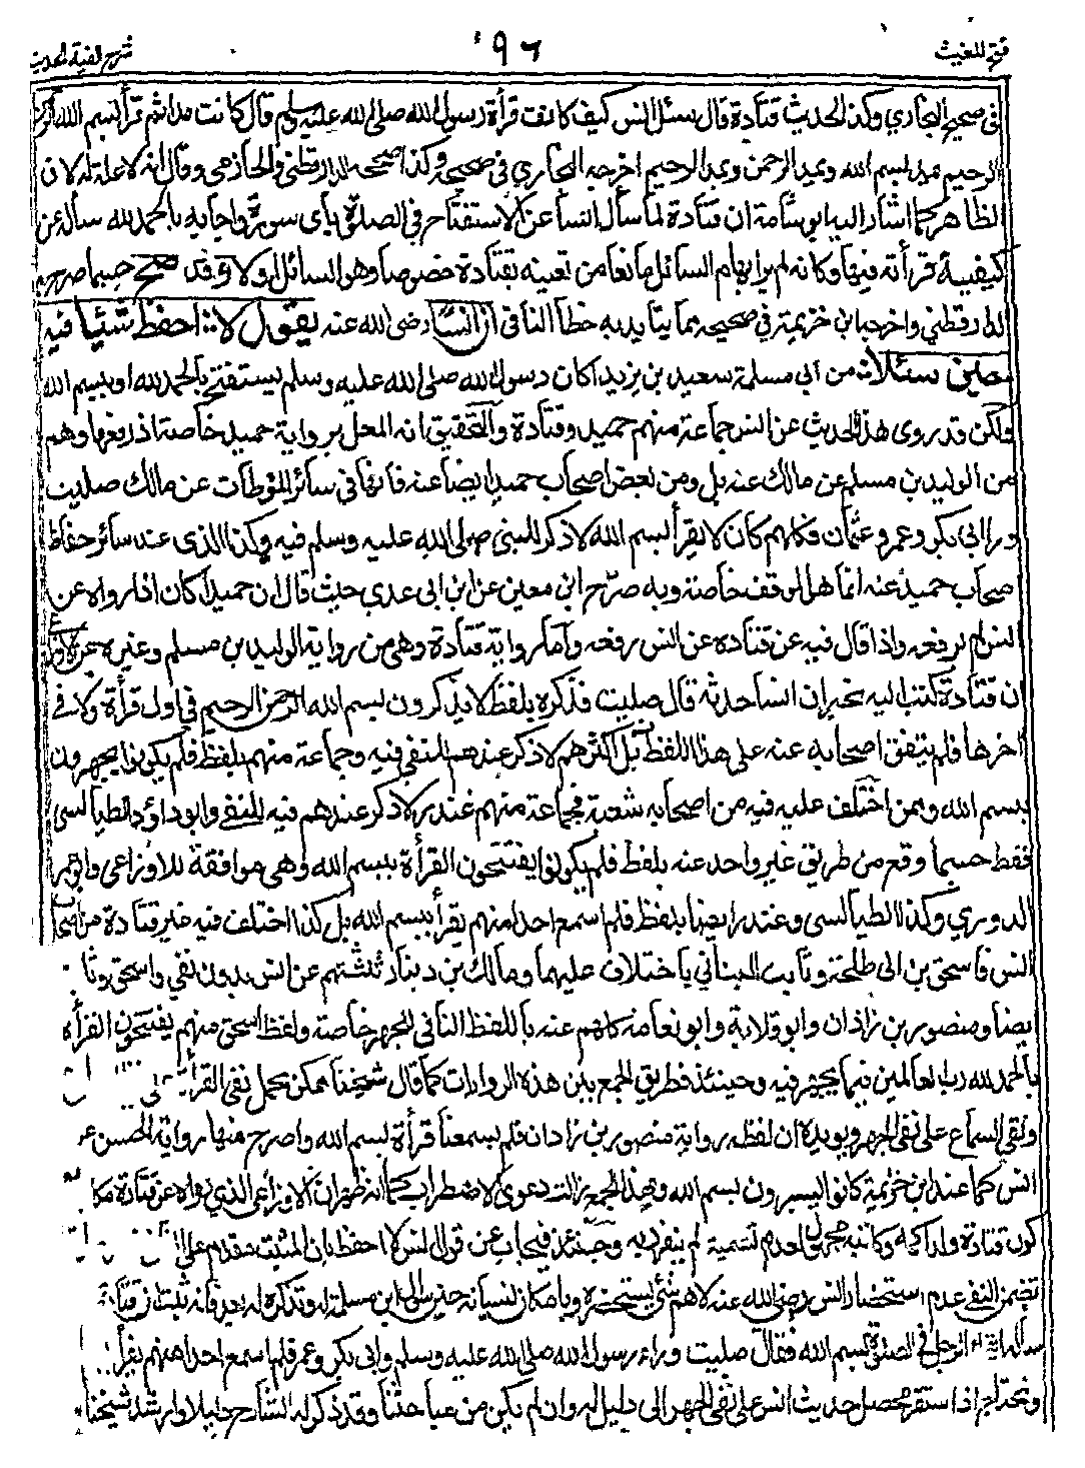 فتح المغيث
٩٦
شرح الفية الحديث
في صحيح البخاري وكذا لحديث قتادة قال سئل انس كيف كانت قرأة رسول الله صلى الله عليه وسلم قال كانت مدا ثم قرأ بسم الله الرحمن
الرحيم يمد بسم الله ويمد الرحمن ويمد الرحيم اخرجه البخاري في صحيحه وكذا صححه الدارقطني والحازمي وقال انه لا علة له لان
الظاهر كما اشار اليه ابو شامة ان قتادة لما سأل انسا عن الاستفتاح في الصلوة بأى سورة واجابه بالحمد لله سأله عن
كيفية قرأته فيها وكانه لم ير ابهام السائل مانعا من تعيينه بقتادة خصوصا وهو السائل اولا وقد صح حسبما صرح به
الدارقطني واخرجه ابن خزيمة في صحيحه مما يتايد به خطأ النافي ان انسا رضى الله عنه يقول لا احفظ شئيا فيه
حين سئلا من ابي مسلمة سعيد بن يزيد اكان رسول الله صلى الله عليه وسلم يستفتح بالحمد لله او ببسم الله
ولكن قد روى هذا الحديث عن انس جماعة منهم حميد وقتادة والتحقيق ان المعل رواية حميد خاصة اذ رفعها وهم
من الوليد بن مسلم عن مالك عنه بل ومن بعض اصحاب حميد ايضا عنه فانها في سائر الموطآت عن مالك صليت
ورا ابى بكر وعمر وعثمان فكلهم كان لا يقرأ بسم الله لا ذكر للنبي صلى الله عليه وسلم فيه وكذا الذى عند سائر حفاظ
صحاب حميد عنه انما هو الوقف خاصة وبه صرح ابن معين عن ابن ابى عدي حيث قال ان حميدا كان اذا رواه عن
انس لم يرفعه واذا قال فيه عن قتاده عن انس رفعه واما رواية قتادة وهى من رواية الوليد بن مسلم وغيره عن الاوزاعى
ان قتادة كتب اليه يخبره ان انسا حدثه قال صليت فذكره بلفظ لا يذكرون بسم الله الرحمن الرحيم في اول قرأة ولا في
اخرها فلم يتفق اصحابه عنه على هذا اللفظ بل اكثرهم لا ذكر عندهم للنفى فيه وجماعة منهم بلفظ فلم يكونوا يجهرون
ببسم الله وممن اختلف عليه فيه من اصحابه شعبة فجماعة منهم غندر لا ذكر عندهم فيه للنفي وابو داؤد الطيالسى
فقط حسبما وقع من طريق غير واحد عنه بلفظ فلم يكونوا يفتتحون القرأة ببسم الله وهى موافقة للاوزاعى وابو عمر
الدوري وكذا الطيالسى وغندر ايضا بلفظ فلم اسمع احدا منهم يقرأ ببسم الله بل كذا اختلف فيه غير قتادة من اصحاب
انس فاسحق بن ابى طلحة وثابت البناني باختلاف عليهما ومالك بن دينار ثلثتهم عن انس بدون نفي واسحق وثا
يضا ومنصور بن زاذان وابو قلابة وابو نعامة كلهم عنه باللفظ النافى للجهر خاصة ولفظ اسحق منهم يفتتحون القرأة
بالحمد لله رب العالمين فيما يجهر فيه وحينئذ فطريق الجمع بين هذه الروايات كما قال شيخنا ممكن بحمل نفى القرأة
ونفي السماع على نفى الجهر ويويده ان لفظ رواية منصور بن زاذان فلم يسمعنا قرأة بسم الله واصرح منها رواية الحسن
انس كما عند ابن خزيمة كانوا يسرون بسم الله وبهذا الجمع زالت دعوى الاضطراب كما انه ظهر ان الاوزاعى الذي رواه عن قتادة مكا
كون قتادة ولد اكمه وكاتبه مجهول لعدم تسميته لم ينفرد به وحينئذ فيجاب عن قول انس لا احفظ بان المثبت مقدم على
تضمن النفى عدم استحضار انس رضي الله عنه لاهم شئ يستحضره وبامكان نسيانه حين سؤال ابى مسلمة له وتذكره له بعد فانه ثبت ان قتادة
سأله الرجل في الصلوة بسم الله فقال صليت وراء رسول الله صلى الله عليه وسلم وابى بكر وعمر فلم اسمع احدا منهم يقرأ
ونحتاج اذا استقر محصل حديث انس على نفى الجهر الى دليل له وان لم يكن من مباحثنا وقد ذكر له الشارح دليلا وارشد شيخنا